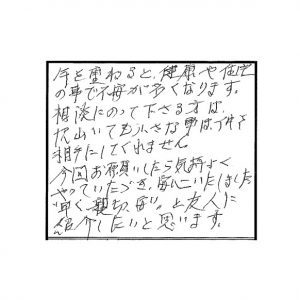 年を重ねると、健康や住宅
の事で不安が多くなります。
相談にのって下さる方は
沢山いても小さな事は
相手にしてくれません
今回お願いしたら気持よく
やっていただき、
早く、親切、安い、と友人に
紹介したいと思います。